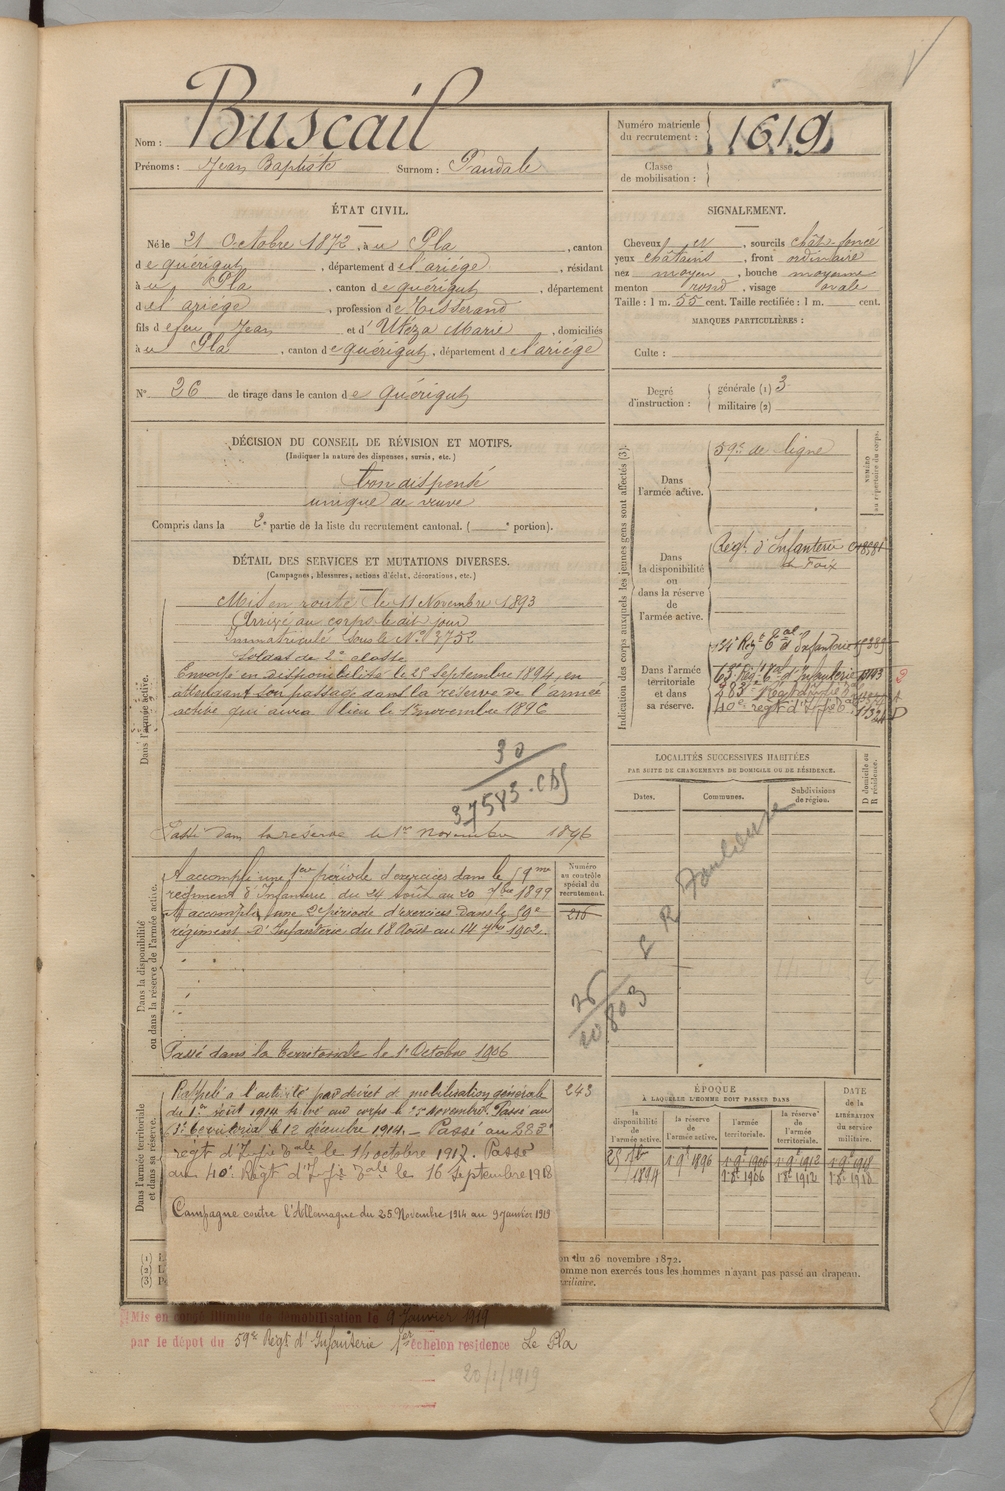 Nom : Buscail
Prénoms : Jean Baptiste Surnom :
Numéro matricule du recrutement : 1619
Classe de mobilisation :
ÉTAT CIVIL.
Né le 21 Octobre 1872, à u Pla, canton
de quérigut, département de l'ariège, résidant
à u Pla, canton de quérigut, département
de l'ariège, profession de Tisserand
fils de feu Jean et d' Utéza Marie, domiciliés
à u Pla, canton de quérigut, département de l'ariège
N° 26 de tirage dans le canton de quérigut
SIGNALEMENT.
Cheveux et, sourcils chât-foncé
yeux châtains, front ordinaire
nez moyen, bouche moyenne
menton rond, visage ovale
Taille : 1 m. 55 cent. Taille rectifiée : 1 m. cent.
MARQUES PARTICULIÈRES :
Culte :
Degré d'instruction : générale (1) 3
militaire (2)
DÉCISION DU CONSEIL DE RÉVISION ET MOTIFS.
(Indiquer la nature des dispenses, sursis, etc.)
bon dispensé
unique de veuve
Compris dans la 2e partie de la liste du recrutement cantonal. ( portion).
DÉTAIL DES SERVICES ET MUTATIONS DIVERSES.
(Campagnes, blessures, actions d'éclat, décorations, etc.)
Dans l'armée active.
Mis en route le 11 Novembre 1893
Arrivé au corps le dit jour
Immatriculé sous le N° 3752
Soldat de 2e classe
Envoyé en disponibilité le 25 septembre 1894, en
attendant son passage dans la réserve de l'armée
active qui aura lieu le 1er novembre 1896
30
37583
Passé dans la réserve le 1er Novembre 1896
Dans la disponibilité ou dans la réserve de l'armée active.
A accompli une 1ere période d'exercices dans le 59me
régiment d'Infanterie du 24 Août au 20 7bre 1899
A accompli une 2e période d'exercices dans le 59e
régiment d'Infanterie du 18 Août au 14 7bre 1902.
Passé dans la territoriale le 1r Octobre 1906
Numéro au contrôle spécial du recrutement.
216
243
Dans l'armée territoriale et dans sa réserve.
Rappelé à l'activité par décret de mobilisation générale
du 1er août 1914 arrivé au corps le 25 novembre. Passé au
territorial le 12 décembre 1914. — Passé au 283e
régt d'Ifie le 14 octobre 1917. Passé
au 40e Régt d'Ifie le 16 septembre 1918
Campagne contre l'Allemagne du 25 Novembre 1914 au 9 janvier 1919
Indication des corps auxquels les jeunes gens sont affectés (3).
NUMÉRO au répertoire du corps.
Dans l'armée active.
59e de ligne
Dans la disponibilité ou dans la réserve de l'armée active.
Régt d'Infanterie
de Foix
Dans l'armée territoriale et dans sa réserve.
134e Régt Eal d'Infanterie
283e Régt d'Infie
40e régt d'Ifie
LOCALITÉS SUCCESSIVES HABITÉES
PAR SUITE DE CHANGEMENTS DE DOMICILE OU DE RÉSIDENCE.
Dates. Communes. Subdivisions de région. D domicile ou R résidence.
R Toulouse
ÉPOQUE
À LAQUELLE L'HOMME DOIT PASSER DANS
la disponibilité de l'armée active. la réserve de l'armée active. l'armée territoriale. la réserve de l'armée territoriale. DATE de la LIBÉRATION du service militaire.
1894 1r 9e 1896 1r 9e 1906 1r 9e 1912 1r 9e 1918
1r 8e 1906 1r 8e 1912 1r 8e 1918
(1)
(2)
(3)
on du 26 novembre 1872.
omme non exercés tous les hommes n'ayant pas passé au drapeau.
uxiliaire.
Mis en congé illimité de démobilisation le 9 Janvier 1919
par le dépôt du 59e Régt d'Infanterie 1er échelon résidence Le Pla
20/1/1919